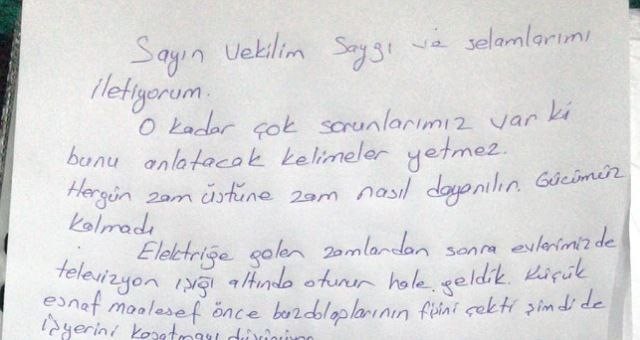 Sayın Vekilim Saygı ve selamlarımı
iletiyorum.
O kadar çok sorunlarımız var ki
bunu anlatacak kelimeler yetmez.
Hergün zam üstüne zam nasıl dayanılır. Gücümüz
kalmadı
Elektriğe gelen zamlardan sonra evlerimizde
televizyon ışığı altında oturur hale geldik. Küçük
esnaf maalesef önce buzdolaplarının fişini çekti şimdi de
işyerini kapatmayı düşünüyor